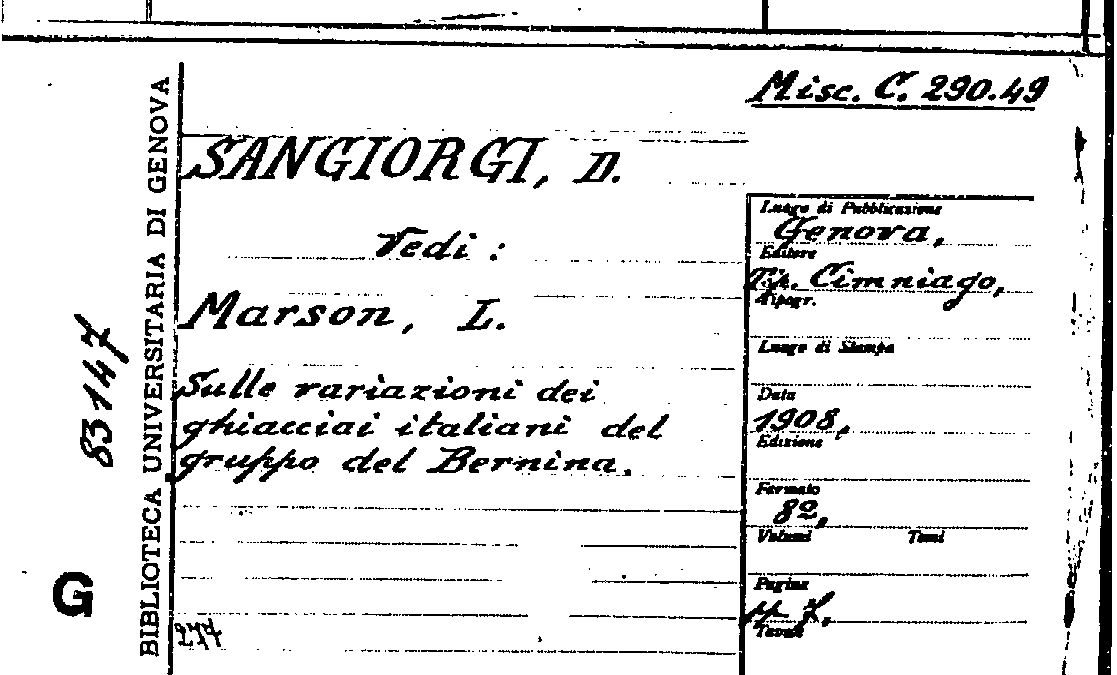 Misc. C. 290.49
SANGIORGI, D.
Vedi :
Marson, L.
Sulle variazioni dei
ghiacciai italiani del
gruppo del Bernina.
277
Luogo di Pubblicazione
Genova,
Editore
Tip. Cimniago,
Tipogr.
Luogo di Stampa
Data
1908,
Edizione
Formato
8º,
Volumi Tomi
Pagine
pp 7,
Tavole
BIBLIOTECA UNIVERSITARIA DI GENOVA
83147
G